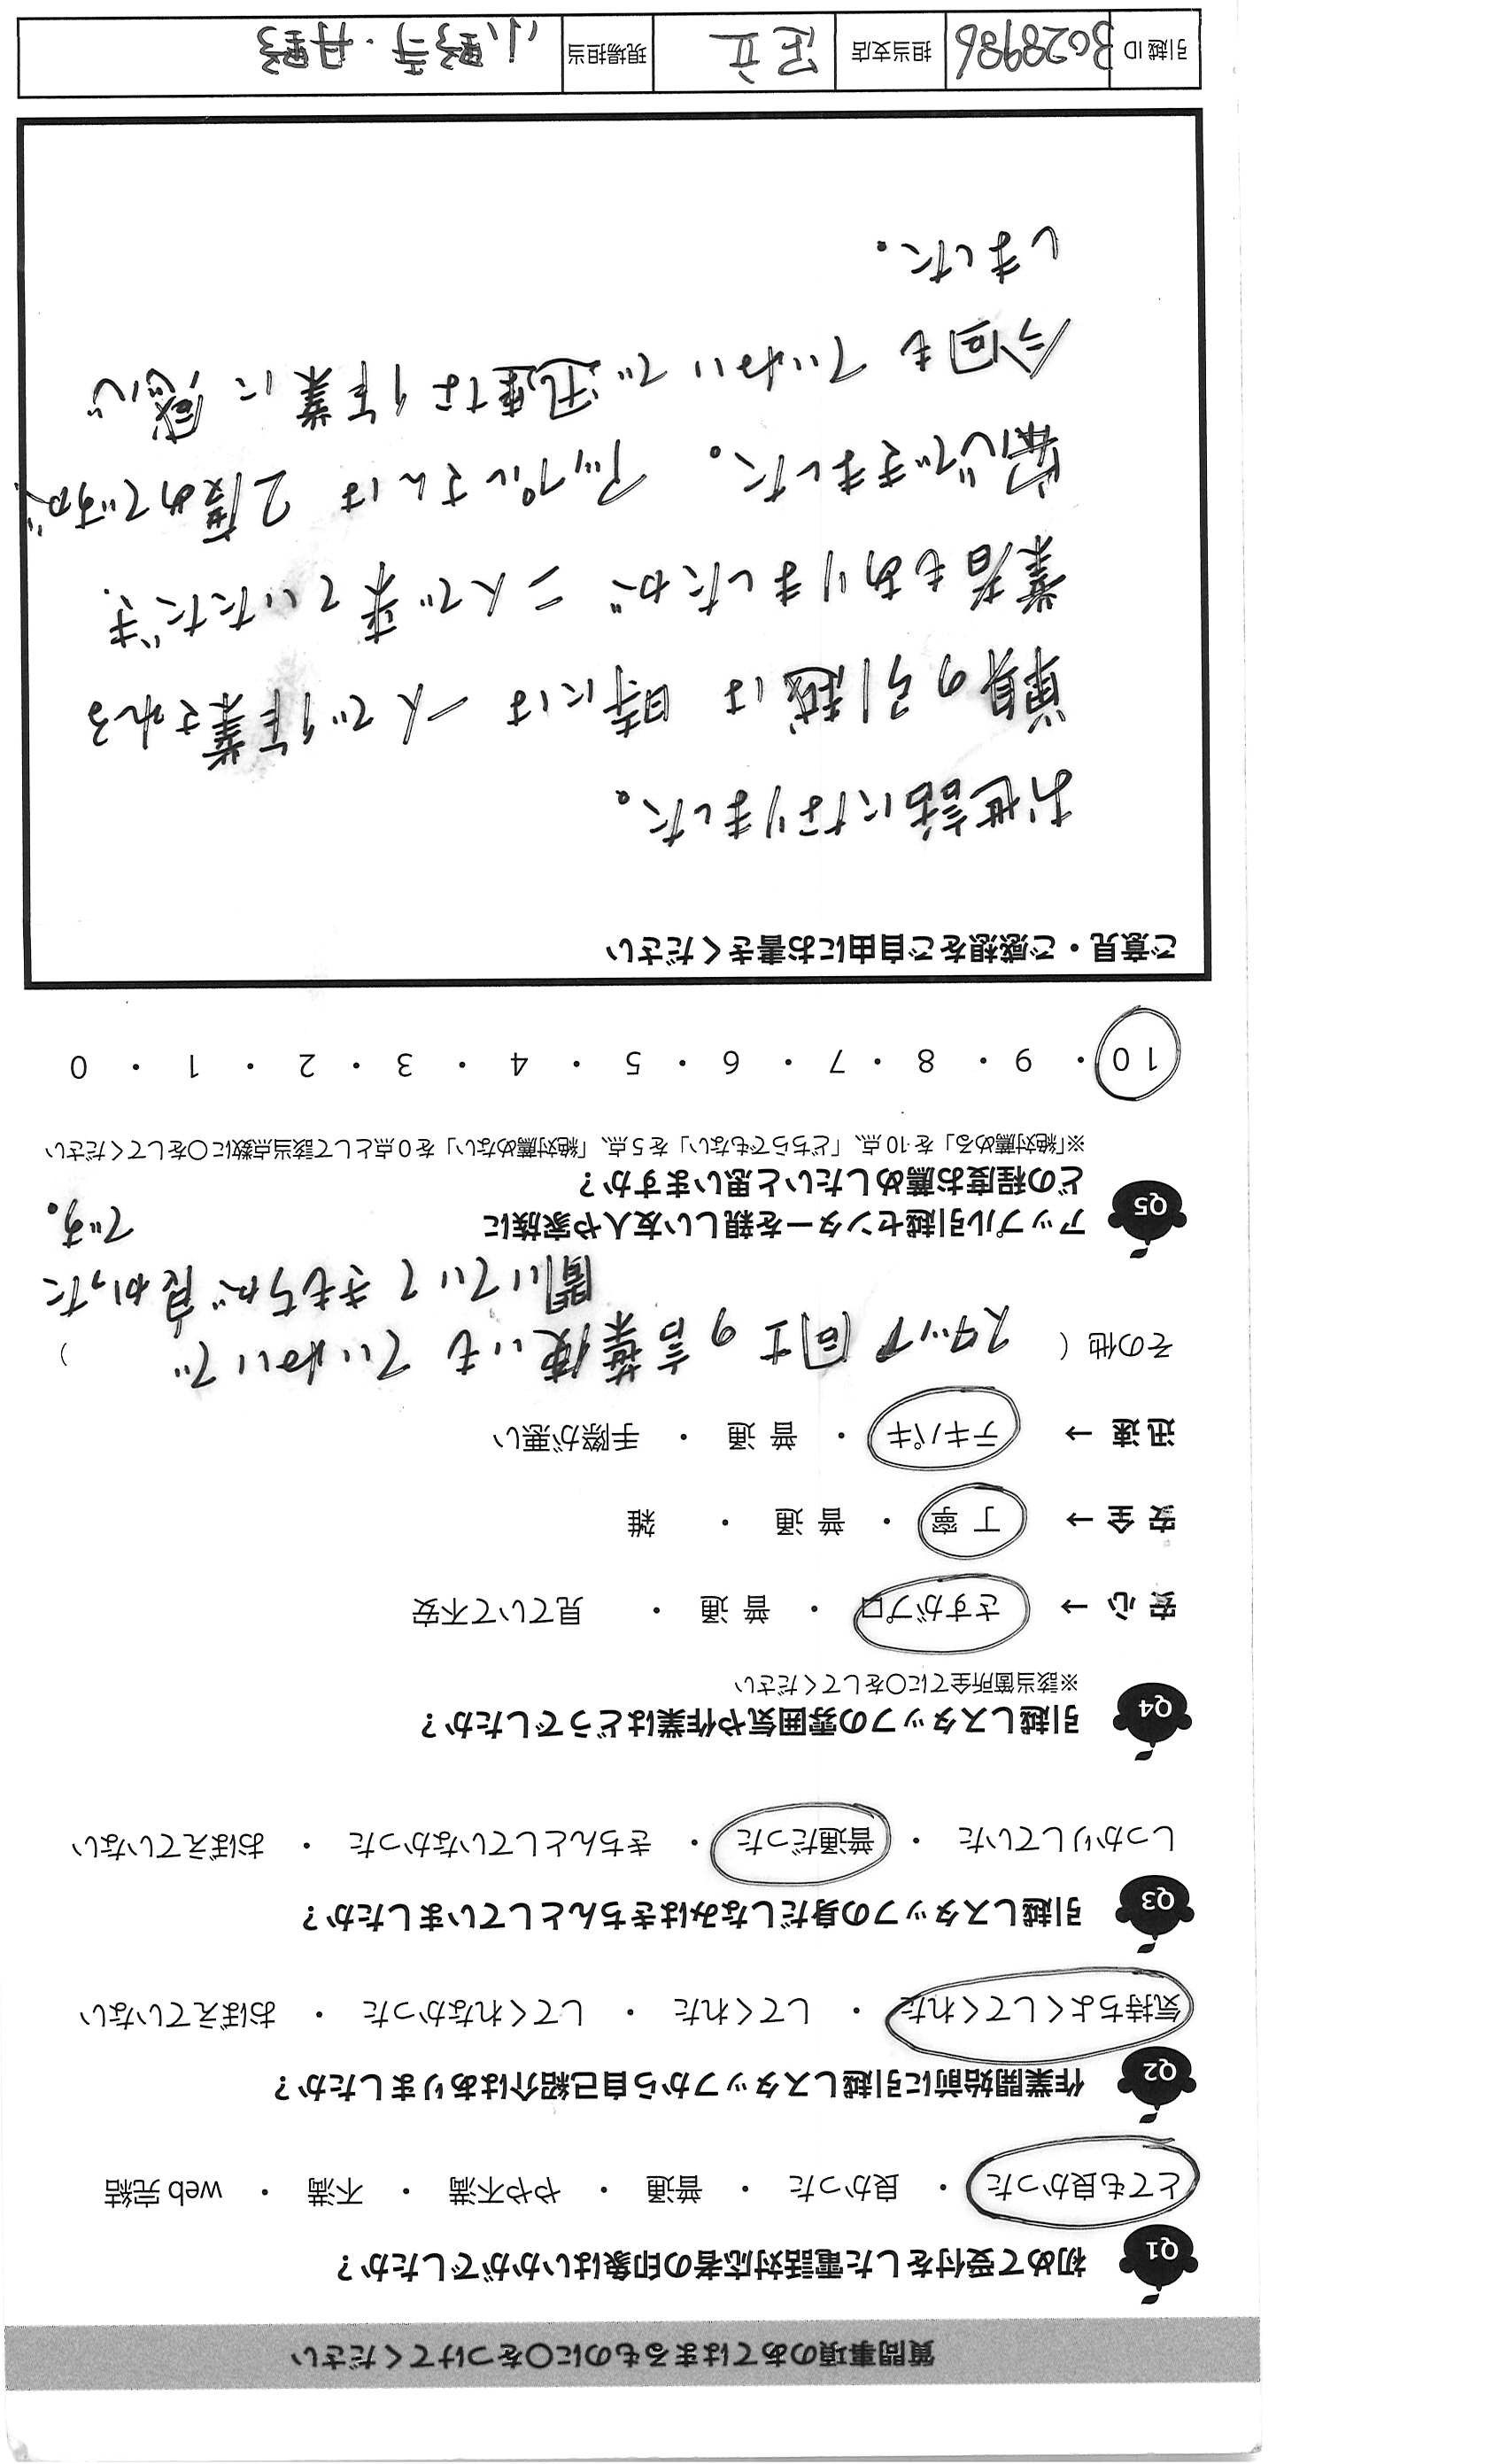 質問事項のあてはまるものに○をつけてください
Q1 初めて受付をした電話対応者の印象はいかがでしたか?
とても良かった ・ 良かった ・ 普通 ・ やや不満 ・ 不満 ・ web完結
Q2 作業開始前に引越しスタッフから自己紹介はありましたか?
気持ちよくしてくれた ・ してくれた ・ してくれなかった ・ おぼえていない
Q3 引越しスタッフの身だしなみはきちんとしていましたか?
しっかりしていた ・ 普通だった ・ きちんとしていなかった ・ おぼえていない
Q4 引越しスタッフの雰囲気や作業はどうでしたか?
※該当箇所全てに○をしてください
安心 → さすがプロ ・ 普通 ・ 見ていて不安
安全 → 丁寧 ・ 普通 ・ 雑
迅速 → テキパキ ・ 普通 ・ 手際が悪い
その他( スタッフ同士の言葉使いもていねいで )
聞いていてきもちが良かった
です。
Q5 アップル引越センターを親しい友人や家族に
どの程度お薦めしたいと思いますか?
※「絶対薦める」を10点、「どちらでもない」を5点、「絶対薦めない」を0点として該当点数に○をしてください
10 ・ 9 ・ 8 ・ 7 ・ 6 ・ 5 ・ 4 ・ 3 ・ 2 ・ 1 ・ 0
ご意見・ご感想をご自由にお書きください
お世話になりました。
単身の引越は 時には 一人で作業される
業者もありましたが 二人で来ていただき、
安心できました。 アップルさんは 2度めですが、
今回も ていねいで 迅速な作業に 感心
しました。
引越ID B028986 担当支店 足立 現場担当 小野寺・丹野